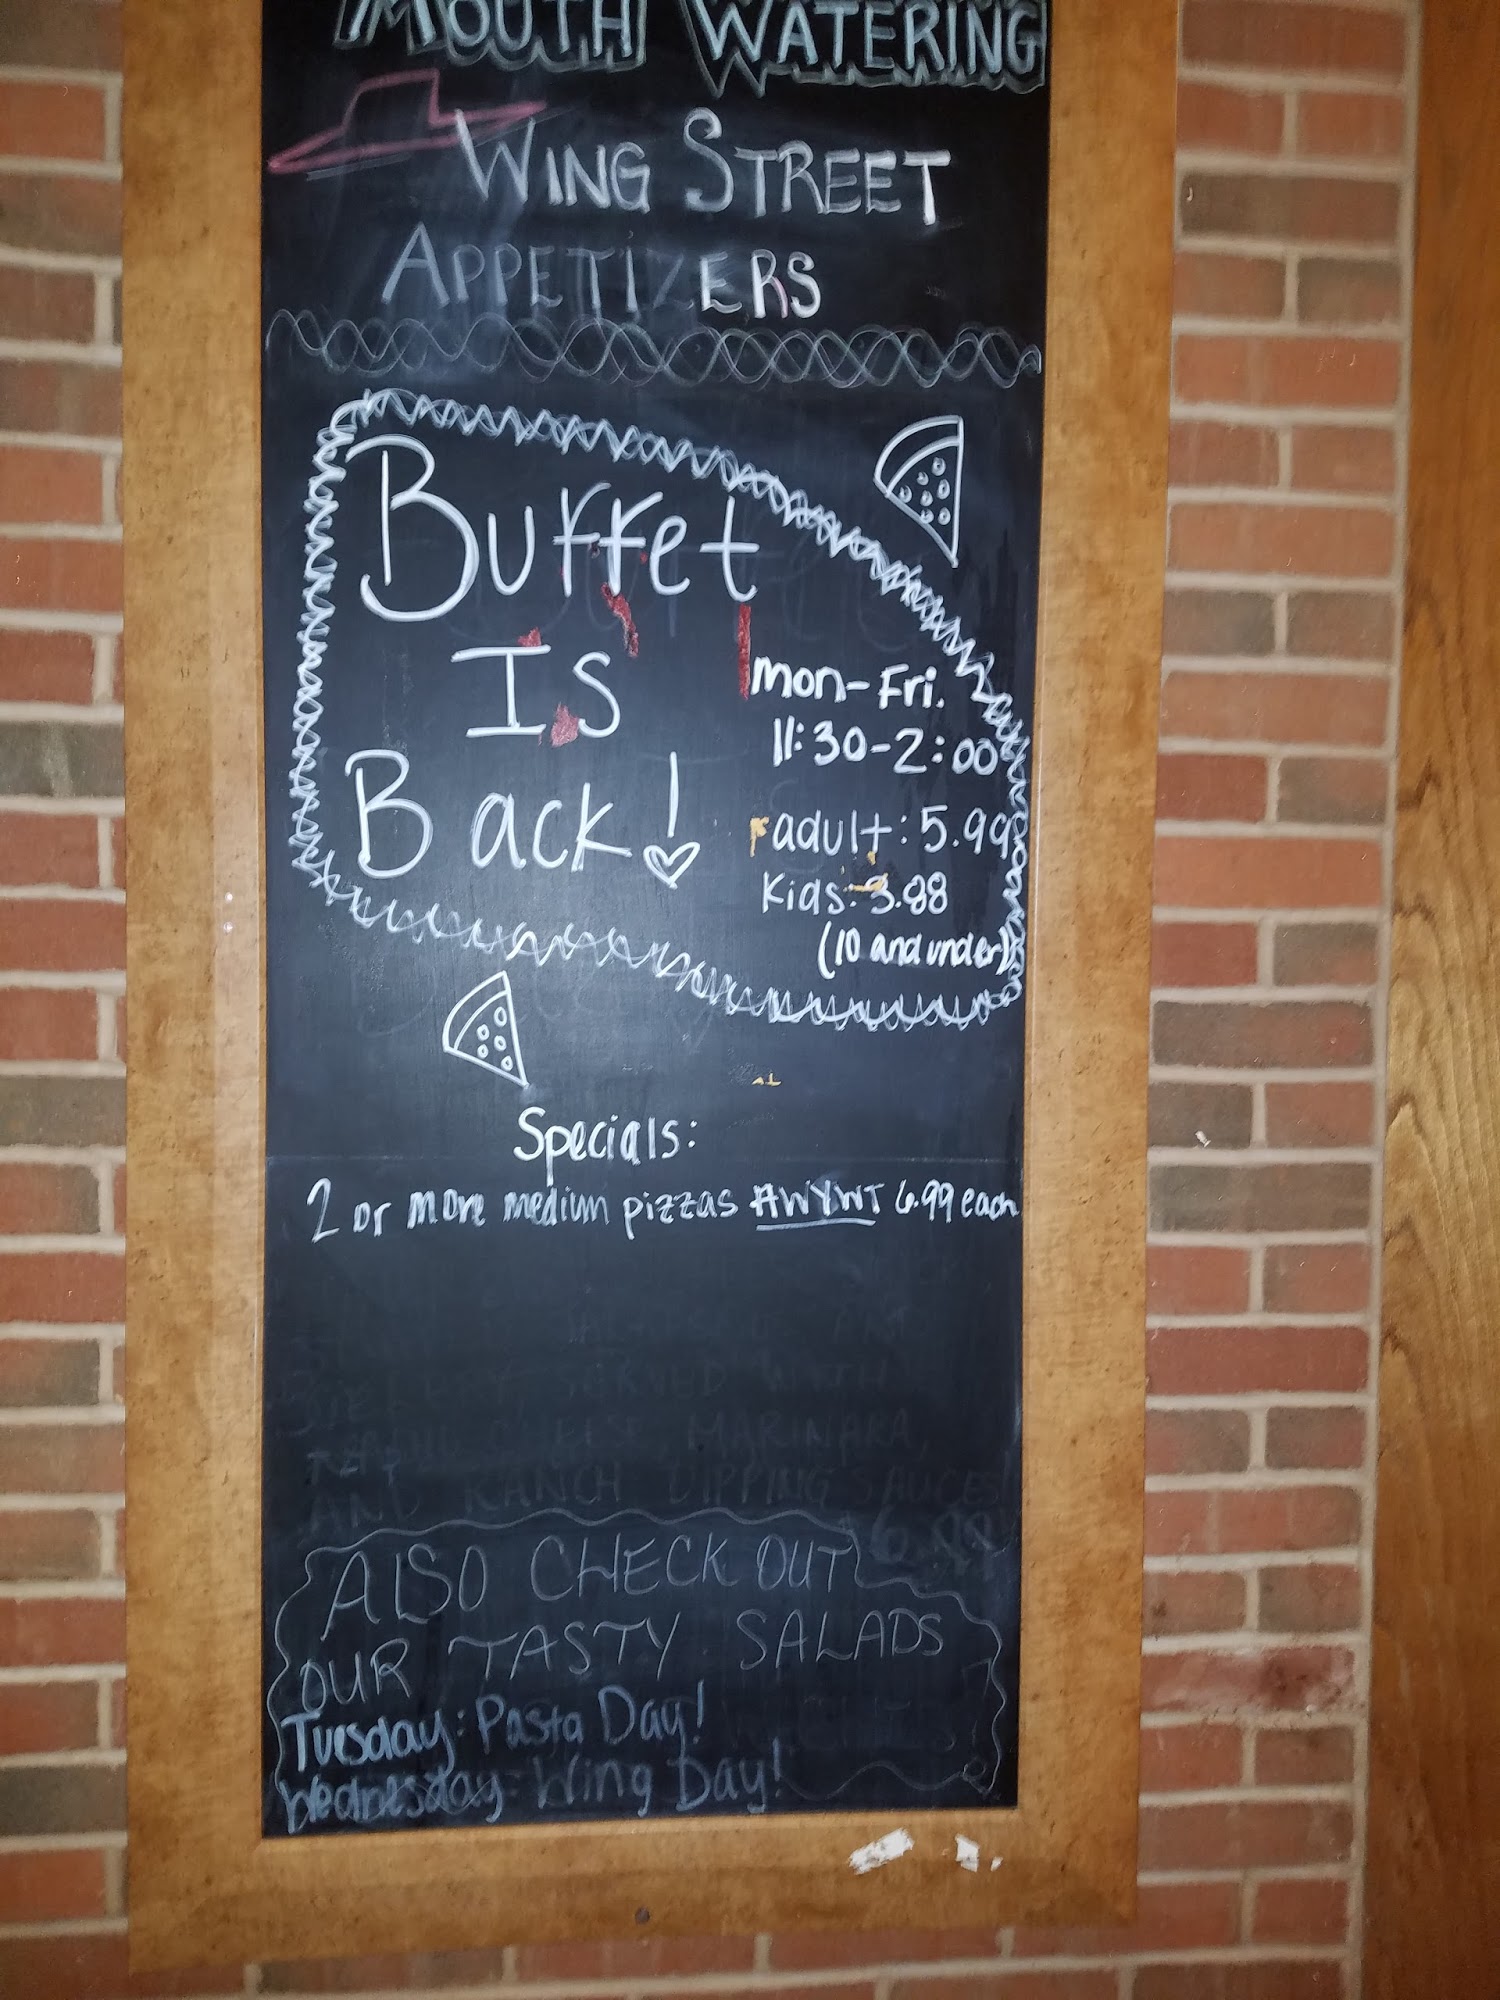 MOUTH WATERING
WING STREET
APPETIZERS
Buffet
Is
Back!
mon-Fri.
11:30-2:00
adult: 5.99
Kids: 3.88
(10 and under)
Specials:
2 or more medium pizzas #WYWT 6.99 each
SERVED WITH
CHEESE, MARINARA,
AND RANCH DIPPING SAUCES!
ALSO CHECK OUT
OUR TASTY SALADS
Tuesday: Pasta Day!
Wednesday: Wing Day!